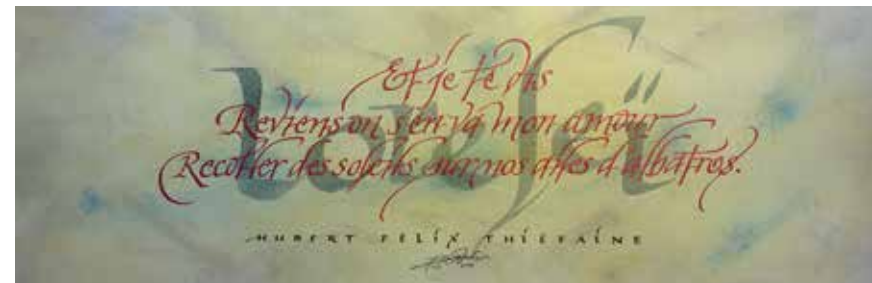 Loreleï
Et je te dis
Reviens on s'en va mon amour
Recoller des soleils sur nos ailes d'albatros.
HUBERT FELIX THIEFAINE